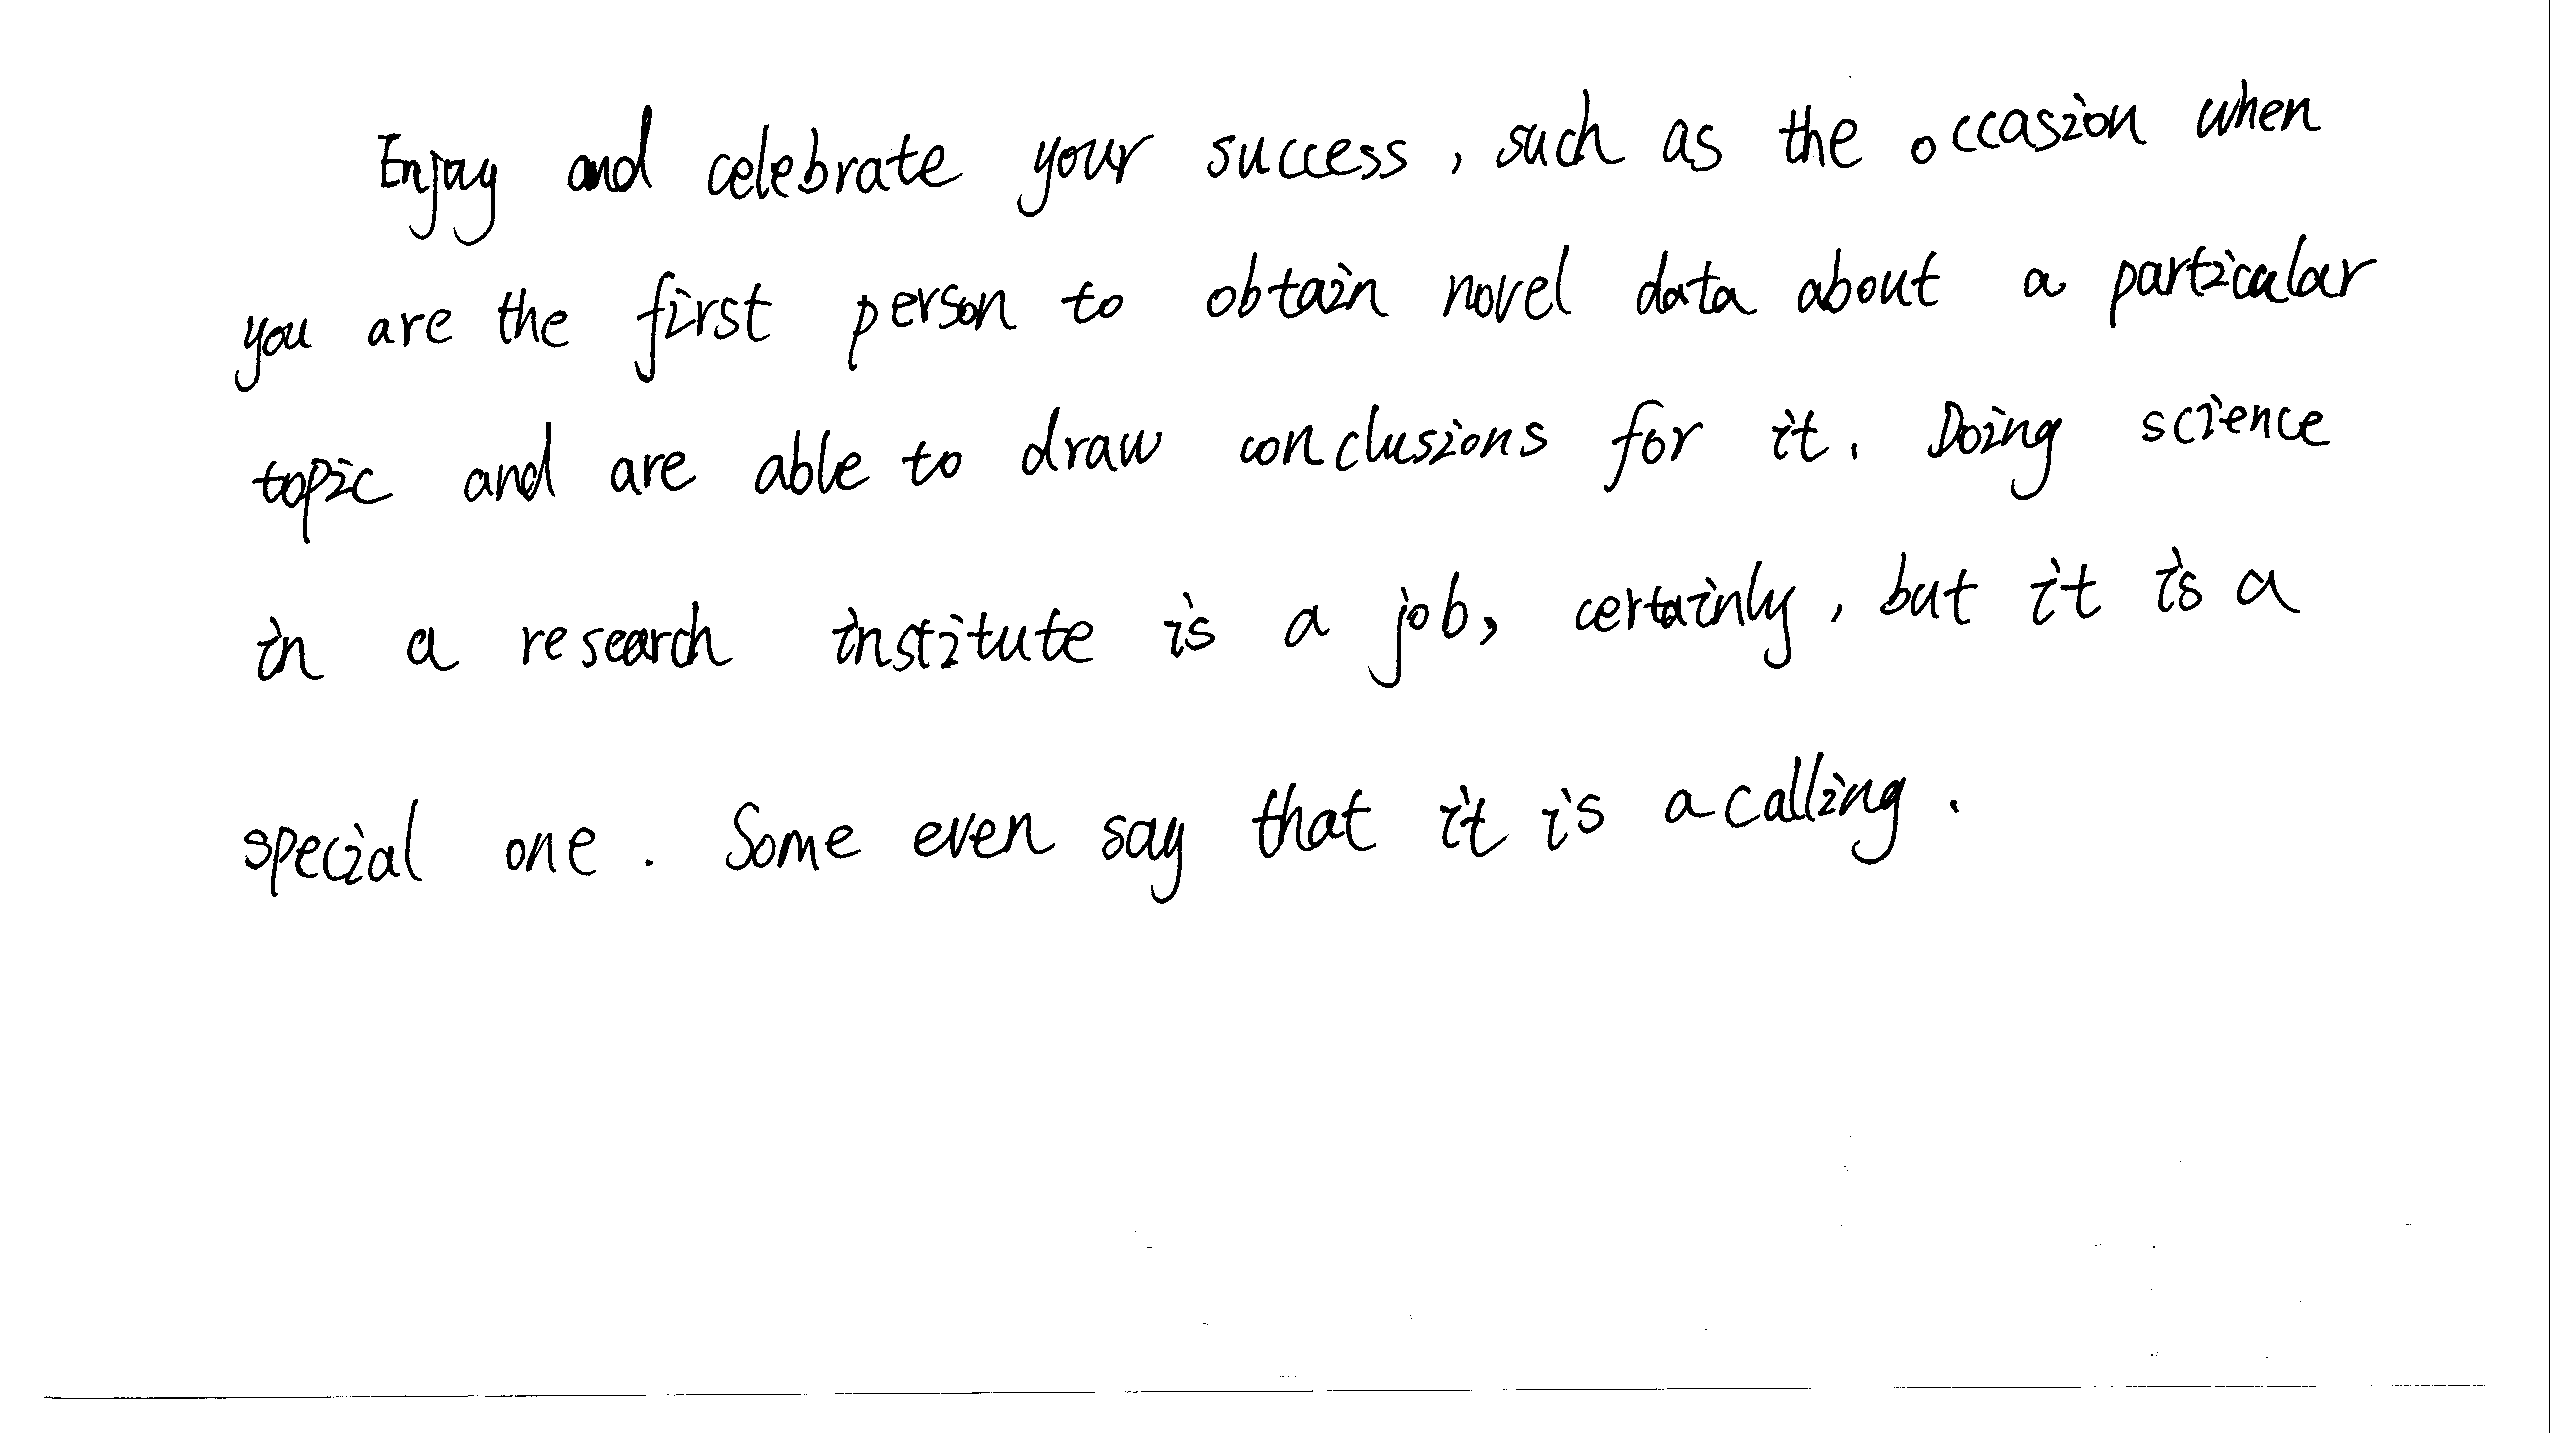 Enjoy and celebrate your success, such as the occasion when
you are the first person to obtain novel data about a particular
topic and are able to draw conclusions for it. Doing science
in a research institute is a job, certainly, but it is a
special one. Some even say that it is a calling.